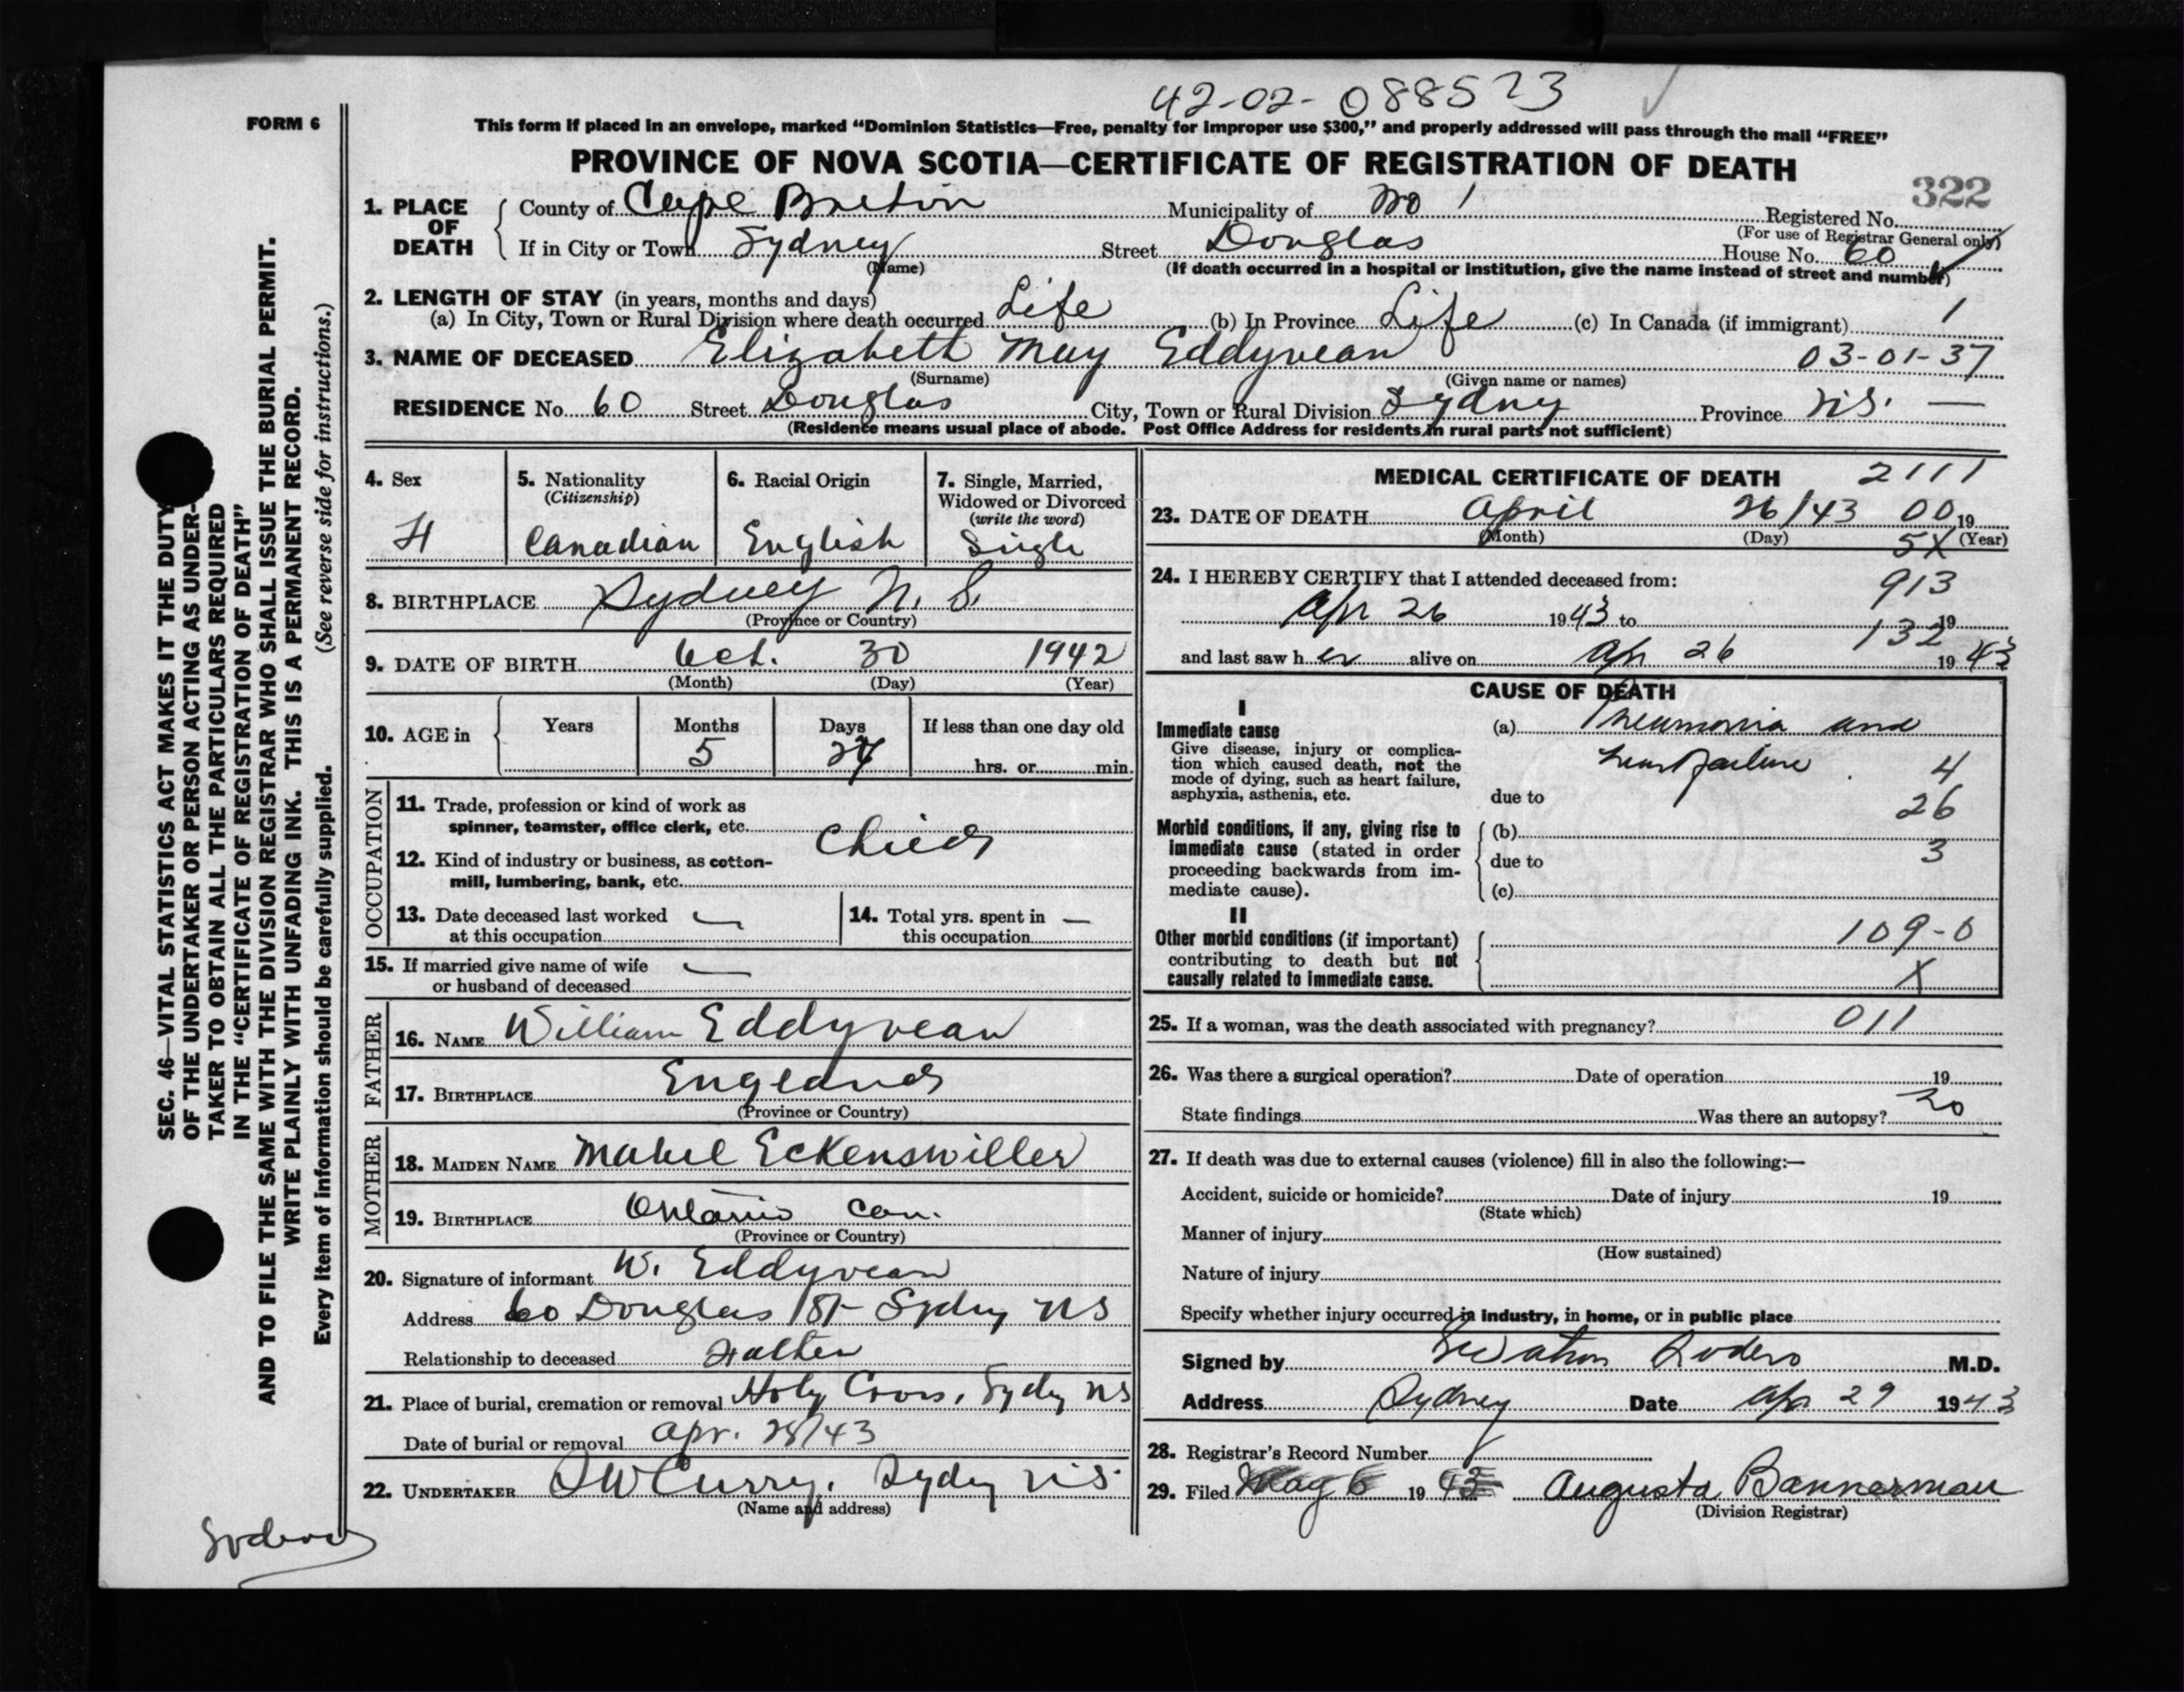 42-02-088523
FORM 6
This form if placed in an envelope, marked “Dominion Statistics—Free, penalty for improper use $300,” and properly addressed will pass through the mail “FREE”
PROVINCE OF NOVA SCOTIA—CERTIFICATE OF REGISTRATION OF DEATH
322
1. PLACE OF DEATH
County of Cape Breton Municipality of No 1 Registered No.
(For use of Registrar General only)
If in City or Town Sydney Street Douglas House No. 60
(Name) (If death occurred in a hospital or institution, give the name instead of street and number)
2. LENGTH OF STAY (in years, months and days)
(a) In City, Town or Rural Division where death occurred Life (b) In Province Life (c) In Canada (if immigrant) 1
3. NAME OF DECEASED Elizabeth May Eddyvean 03-01-37
(Surname) (Given name or names)
RESIDENCE No. 60 Street Douglas City, Town or Rural Division Sydney Province N.S. —
(Residence means usual place of abode. Post Office Address for residents in rural parts not sufficient)
4. Sex
F
5. Nationality
(Citizenship)
Canadian
6. Racial Origin
English
7. Single, Married,
Widowed or Divorced
(write the word)
Single
8. BIRTHPLACE Sydney N. S.
(Province or Country)
9. DATE OF BIRTH Oct. 30 1942
(Month) (Day) (Year)
10. AGE in
Years Months Days If less than one day old
5
hrs. or min.
OCCUPATION
11. Trade, profession or kind of work as
spinner, teamster, office clerk, etc.
Child
12. Kind of industry or business, as cotton-
mill, lumbering, bank, etc.
13. Date deceased last worked —
at this occupation
14. Total yrs. spent in —
this occupation
15. If married give name of wife —
or husband of deceased
FATHER
16. NAME William Eddyvean
17. BIRTHPLACE England
(Province or Country)
MOTHER
18. MAIDEN NAME Mabel Eckenswiller
19. BIRTHPLACE Ontario Can.
(Province or Country)
20. Signature of informant W. Eddyvean
Address 60 Douglas St Sydney NS
Relationship to deceased Father
21. Place of burial, cremation or removal Holy Cross, Sydney NS
Date of burial or removal Apr. 28/43
22. UNDERTAKER Curry, Sydney N.S.
(Name and address)
MEDICAL CERTIFICATE OF DEATH 2111
23. DATE OF DEATH April 26/43 00 19
(Month) (Day) (Year)
5X
24. I HEREBY CERTIFY that I attended deceased from:
913
Apr 26 1943 to 19
132
and last saw her alive on Apr 26 1943
CAUSE OF DEATH
I
Immediate cause
Give disease, injury or complica-
tion which caused death, not the
mode of dying, such as heart failure,
asphyxia, asthenia, etc.
(a) Pneumonia and
heart failure 4
due to 26
Morbid conditions, if any, giving rise to
immediate cause (stated in order
proceeding backwards from im-
mediate cause).
(b)
due to 3
(c)
II
Other morbid conditions (if important)
contributing to death but not
causally related to immediate cause.
109-0
X
25. If a woman, was the death associated with pregnancy? 011
26. Was there a surgical operation? Date of operation 19
State findings Was there an autopsy? No
27. If death was due to external causes (violence) fill in also the following:—
Accident, suicide or homicide? Date of injury 19
(State which)
Manner of injury
(How sustained)
Nature of injury
Specify whether injury occurred in industry, in home, or in public place
Signed by M.D.
Address Sydney Date Apr 29 1943
28. Registrar's Record Number
29. Filed May 6 1943 Augusta Bannerman
(Division Registrar)
SEC. 46—VITAL STATISTICS ACT MAKES IT THE DUTY
OF THE UNDERTAKER OR PERSON ACTING AS UNDER-
TAKER TO OBTAIN ALL THE PARTICULARS REQUIRED
IN THE “CERTIFICATE OF REGISTRATION OF DEATH”
AND TO FILE THE SAME WITH THE DIVISION REGISTRAR WHO SHALL ISSUE THE BURIAL PERMIT.
WRITE PLAINLY WITH UNFADING INK. THIS IS A PERMANENT RECORD.
Every item of information should be carefully supplied. (See reverse side for instructions.)